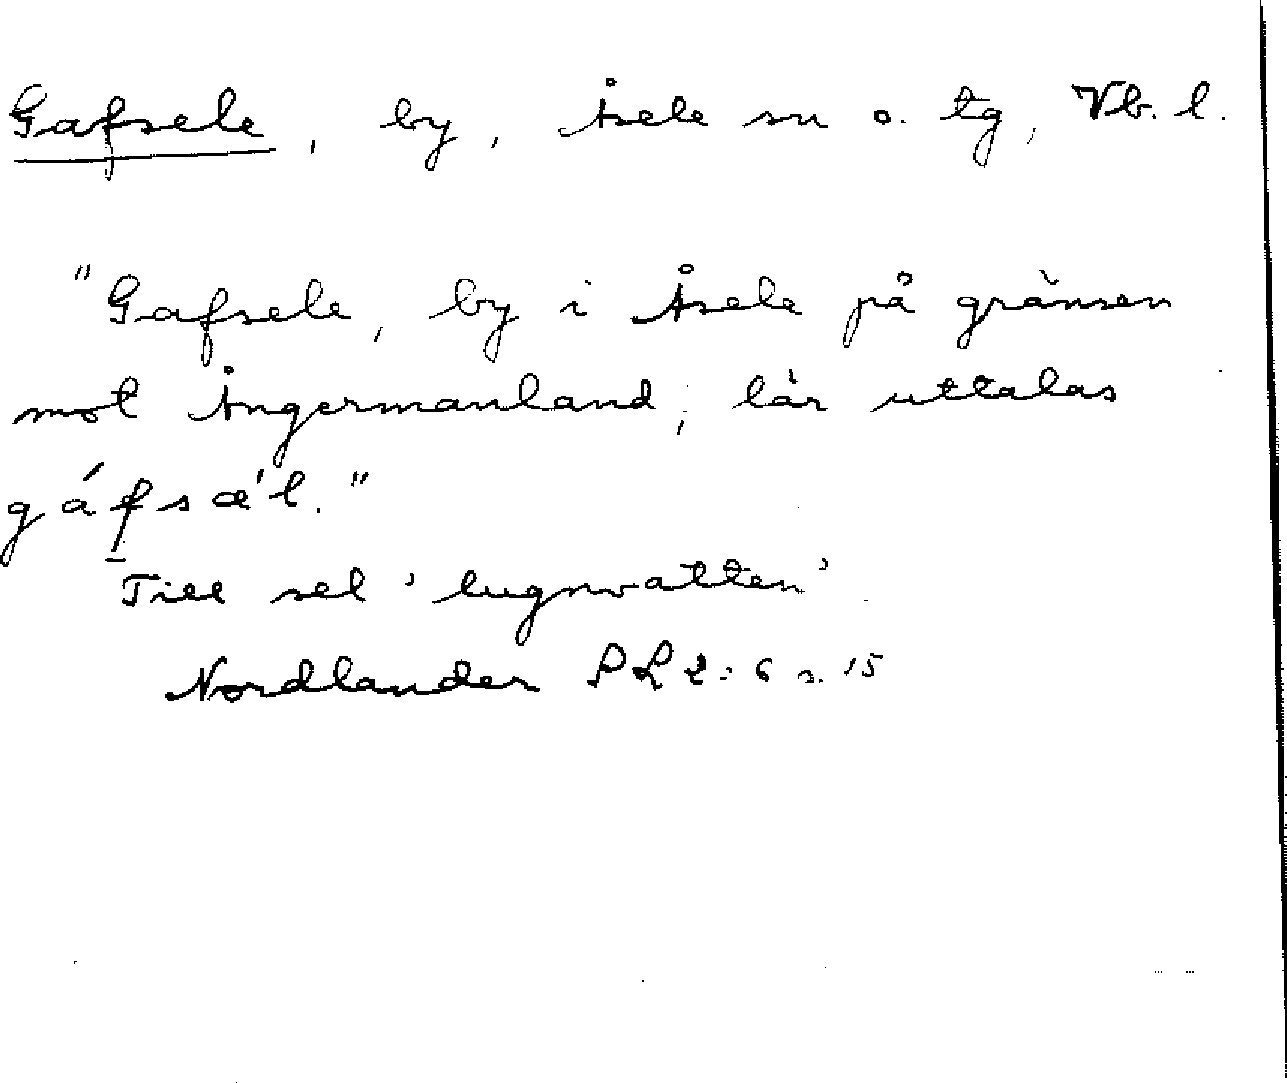 Gafsele, by, Åsele sn o. tg, Vb. l.
"Gafsele, by i Åsele på gränsen
mot Ångermanland, lär uttalas
gáfsæ'l."
Till sel 'lugnvatten'
Nordlander PL 2:6 s. 15